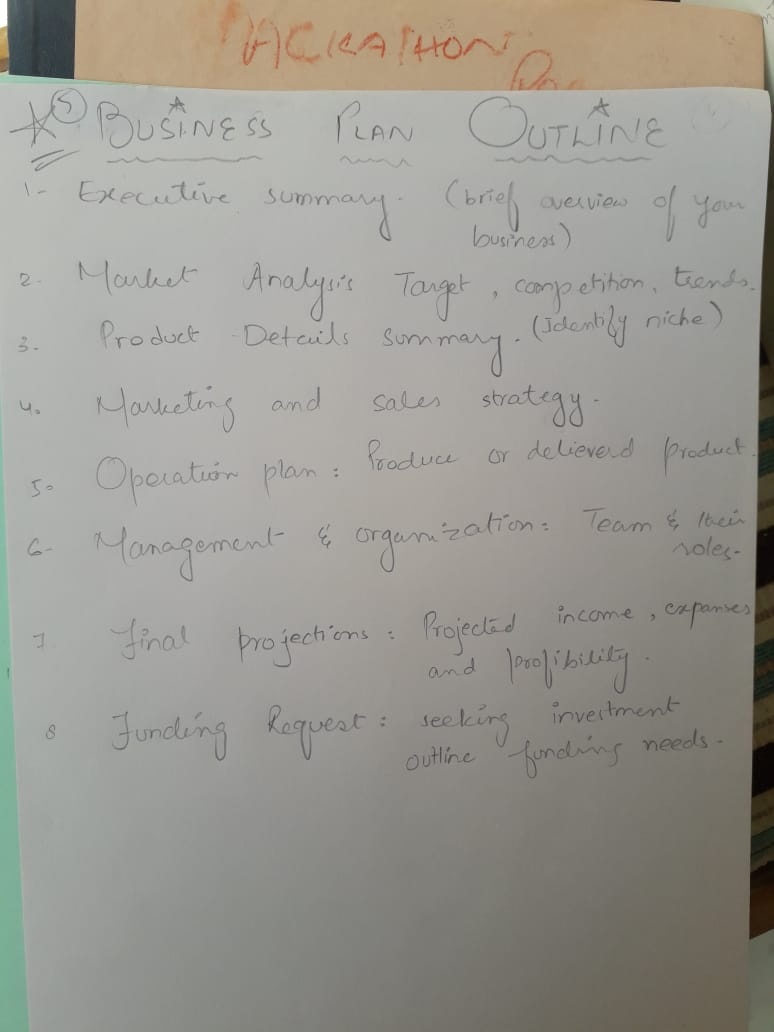 HACKATHON
5 BUSINESS PLAN OUTLINE
1- Executive summary. (brief overview of your
business)
2. Market Analysis Target, competition, trends.
3. Product Details summary. (Identify niche)
4. Marketing and sales strategy.
5. Operation plan: Produce or delieverd product.
6- Management & organization: Team & their
roles-
7 Final projections: Projected income, expanses
and profibility.
8 Funding Request: seeking investment
outline funding needs.